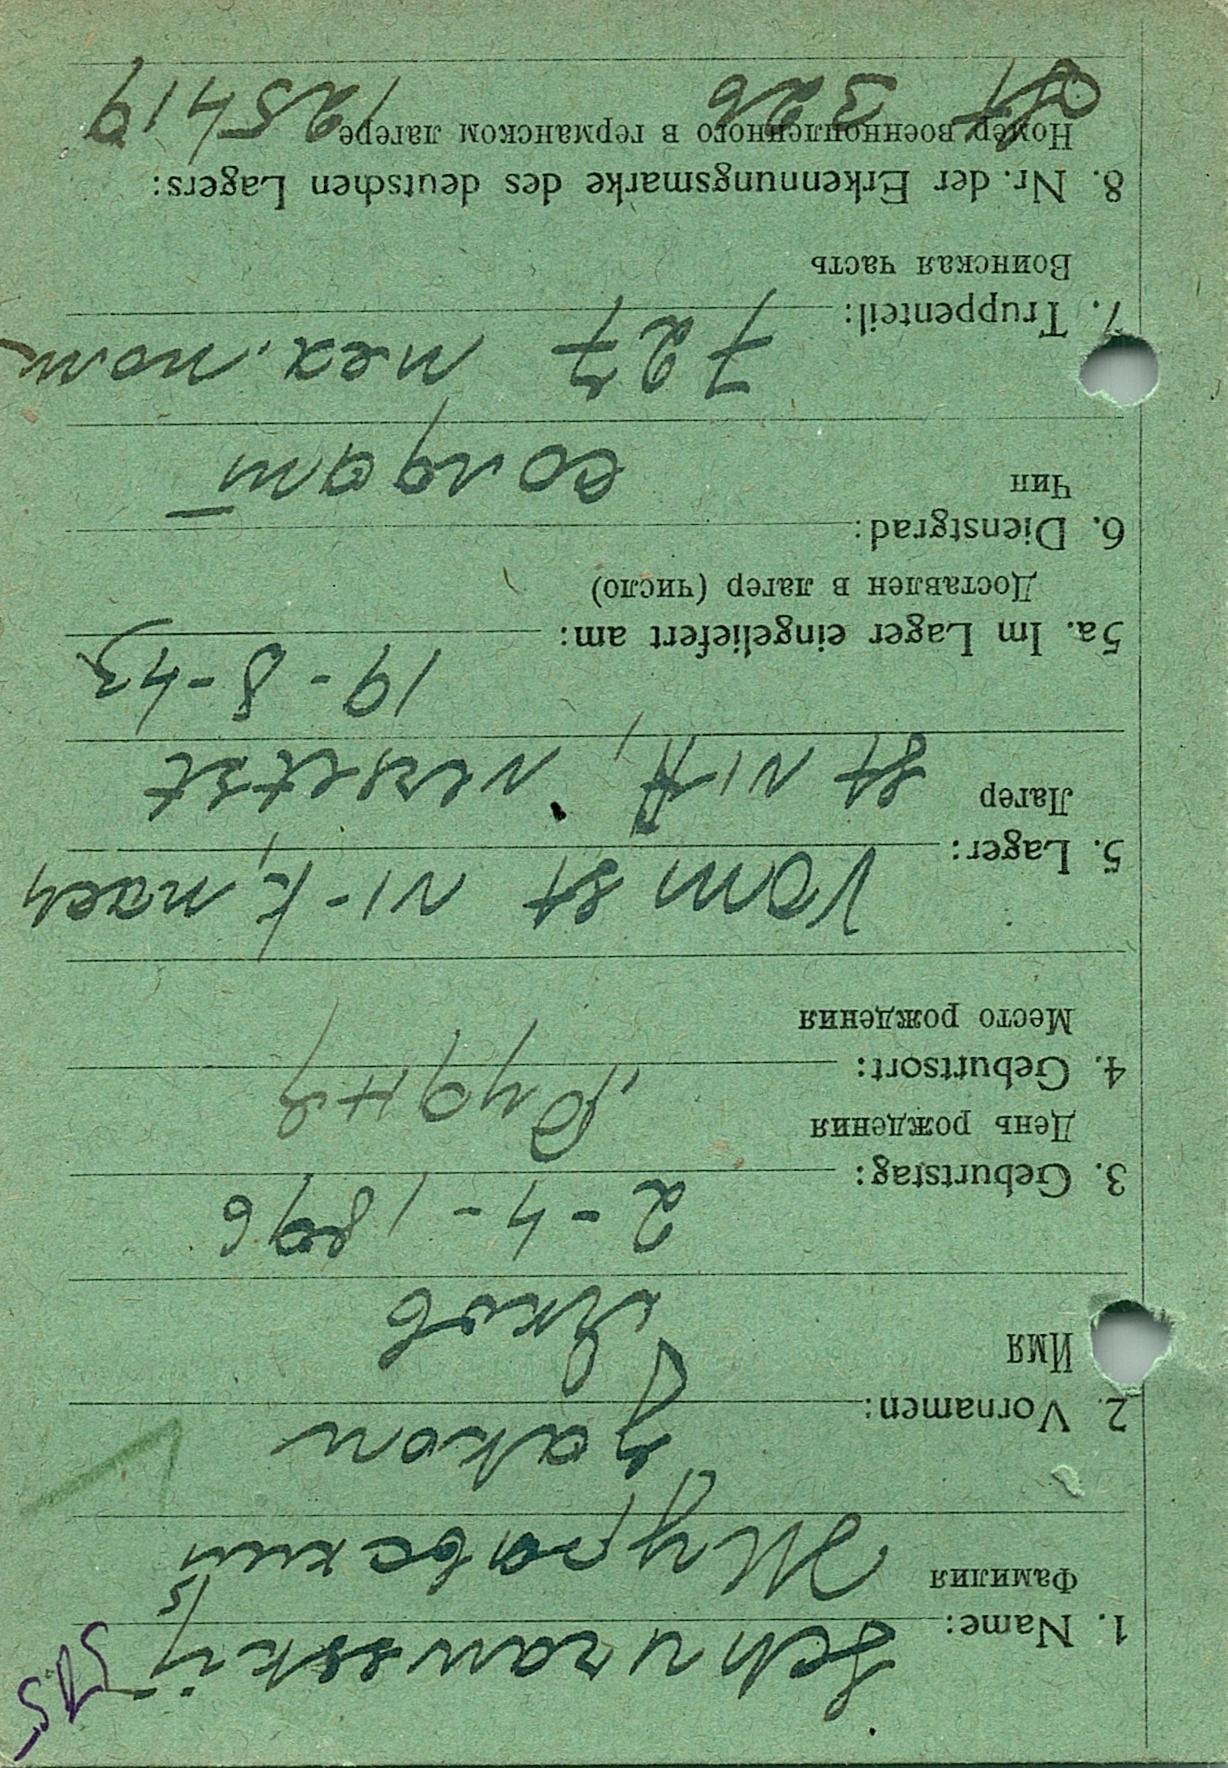 1. Name: Schurawsskij
Фамилия Журавский
2. Vornamen: Jakow
Имя Яков
3. Geburtstag: 2-4-1896
День рождения
4. Geburtsort:
Место рождения
5. Lager: Vom St VI-K, nach
Лагер St VI-A, versetzt
5a. Im Lager eingeliefert am: 19-8-43
Доставлен в лагер (число)
6. Dienstgrad: солдат
Чин
7. Truppenteil: 727 пех. полк
Воинская часть
8. Nr. der Erkennungsmarke des deutschen Lagers:
Номер военнопленного в германском лагере
St 326 125419